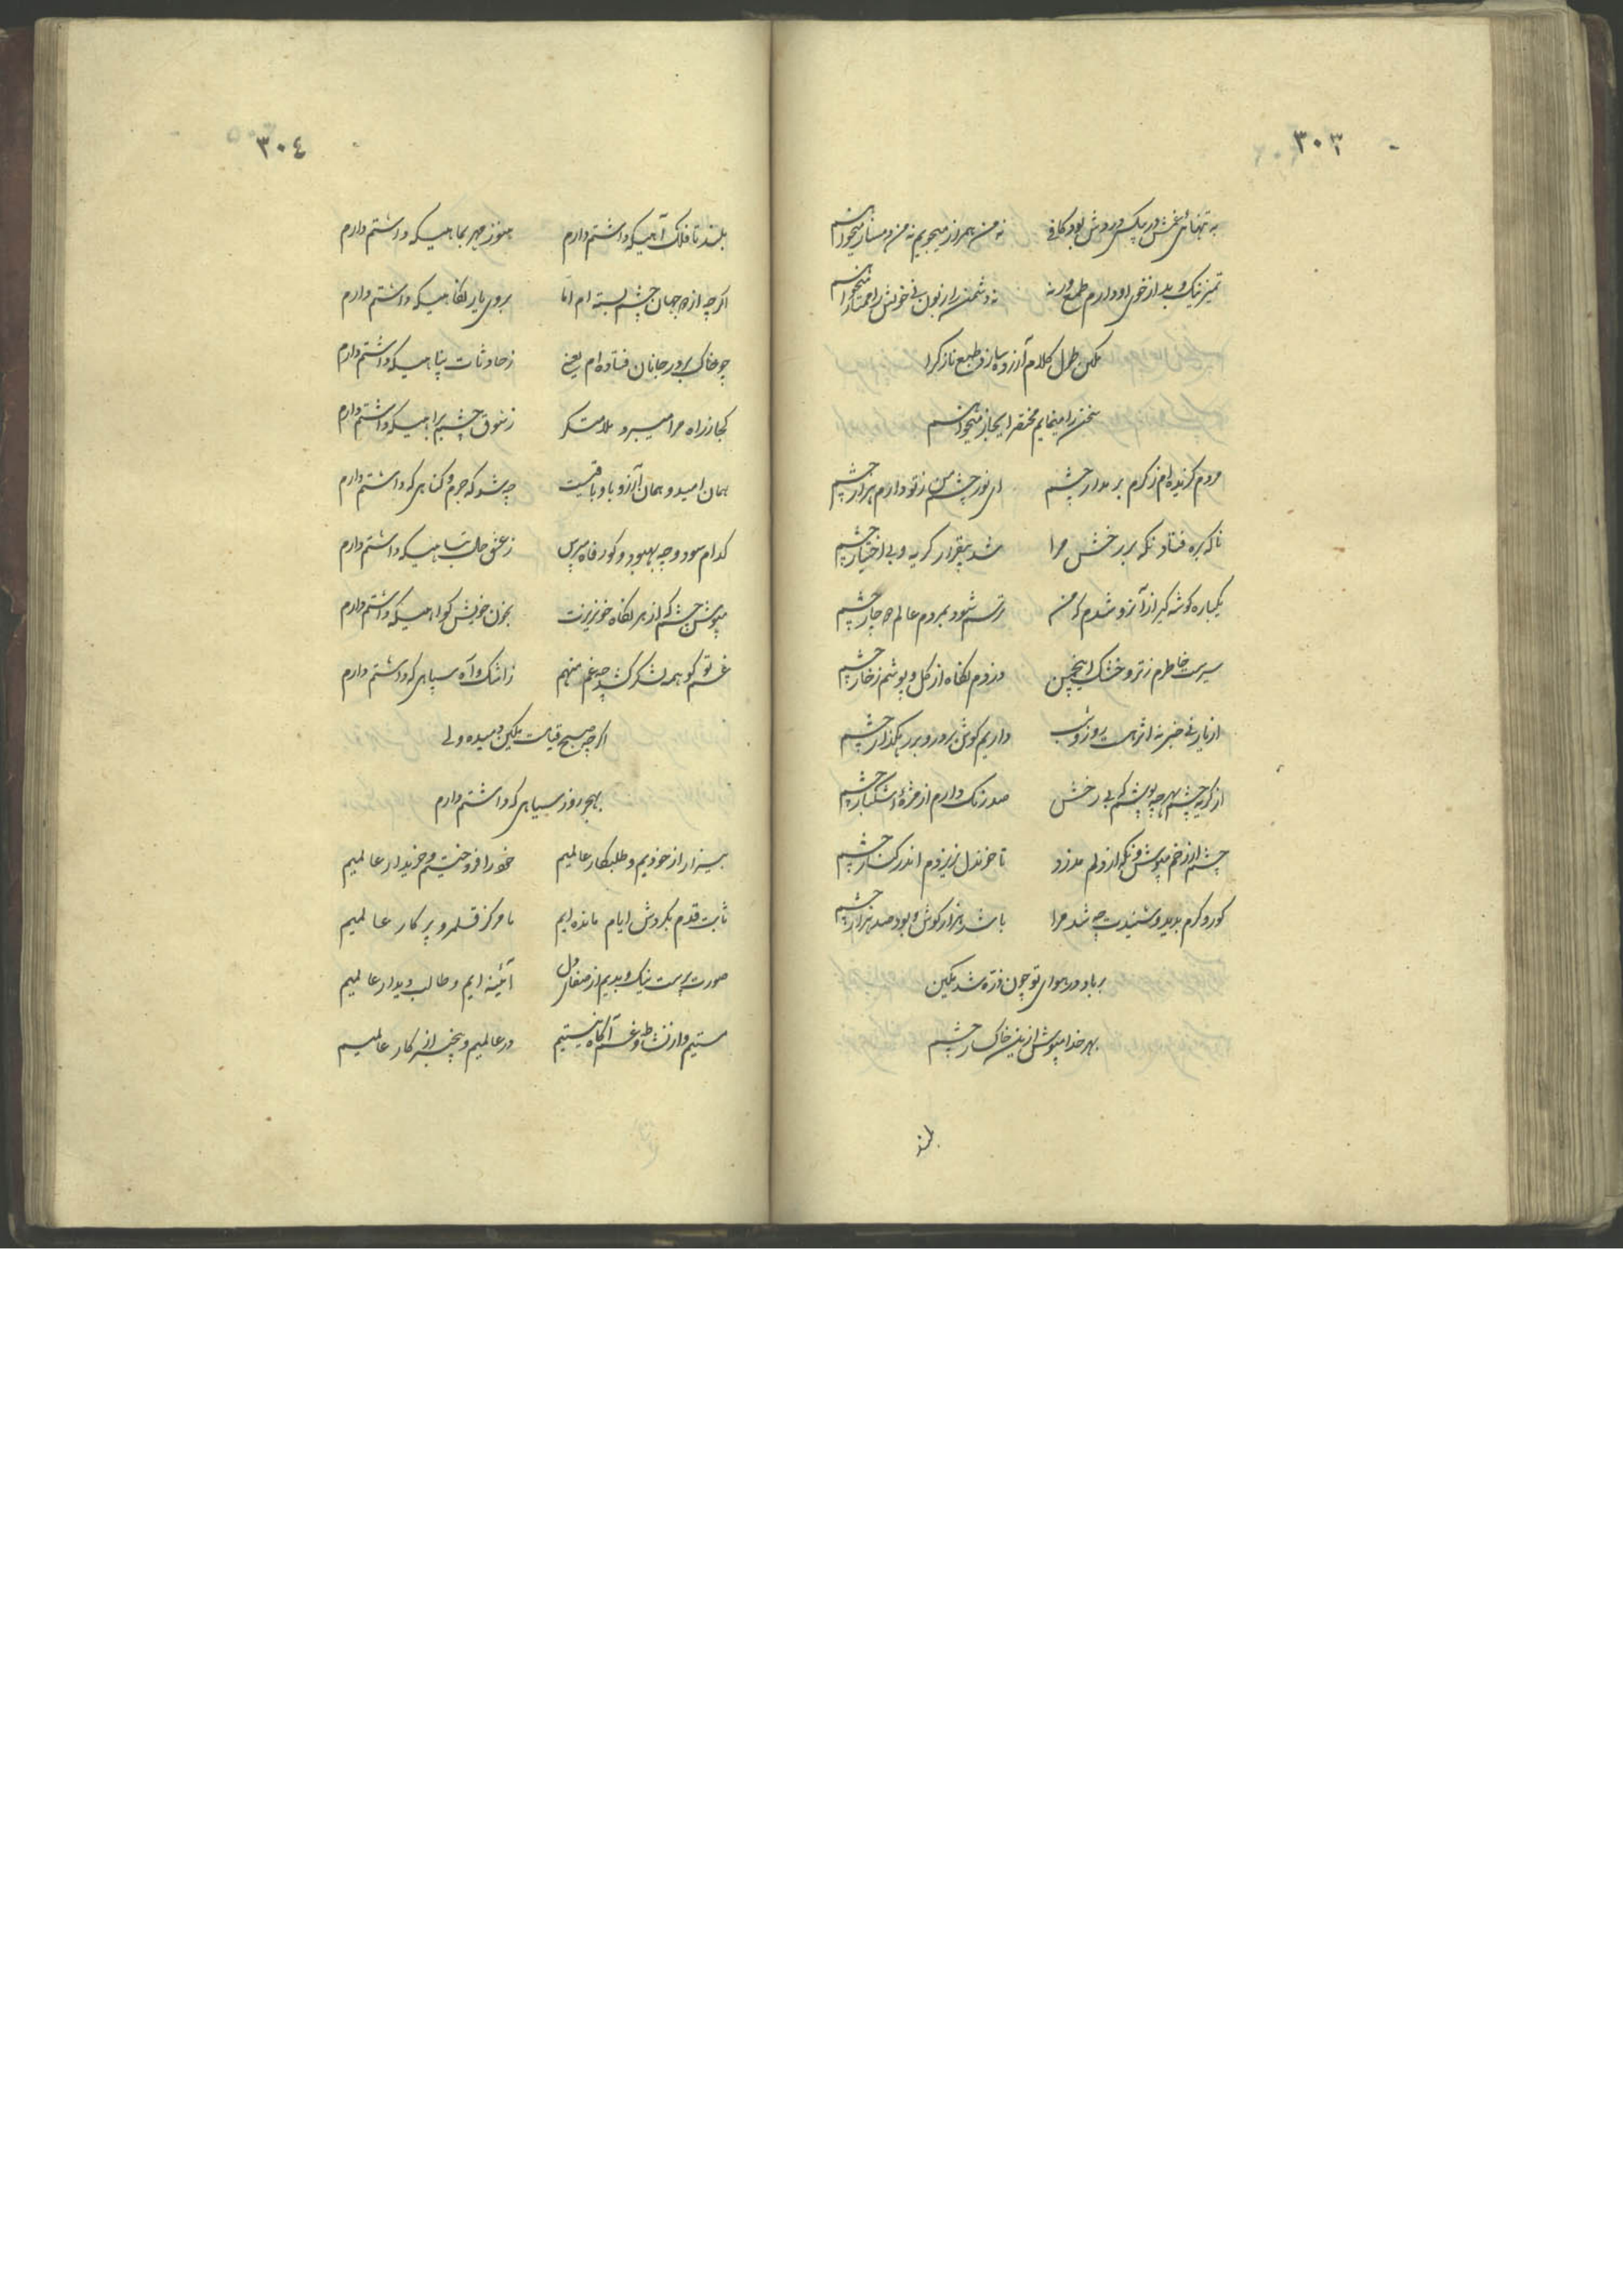 ٣٠٣
به تنهائی غمش در بیکسی دردش بود کافی نه من همراز میجویم نه من دمساز میخواهم
تمیز نیک و بد از خوی او دارم طمع ورنه نه دشمن را زبون نی خویش را ممتاز میخواهم
مکن طول کلام آزرده سازد طبع نازک را
سخن را مینمایم مختصر ایجاز میخواهم
مردم گزیده‌ام ز کرم بر مدار چشم ای نور چشم من ز تو دارم هزار چشم
ناگه بره فتاد نگه بر رخش مرا شد بیقرار گریه و بی اختیار چشم
یکباره گوشه گیر از آنرو شدم که من ترسم شود بمردم عالم دچار چشم
سیرست خاطرم ز تر و خشک اینچنین دزدم نگاه از گل و پوشم ز خار چشم
از یار نی خبر نه اثر هست روز و شب داریم گوش بر در و بر رهگذار چشم
از گریه چشم بهر چه پوشم که بی رخش صد رنگ دارم از مژهٔ اشکبار چشم
چشم از رخم مپوش و نگه از دلم مدزد تا خون دل نریزدم اندر کنار چشم
کور و کرم بدید و شنیدت چه شد مرا باشد هزار گوش و بود صد هزار چشم
بر باد در هوای تو چون ذره شد مکین
بهر خدا مپوش ازین خاکسار چشم
بلند
٣٠٤
بلند تا فلک آهیکه داشتم دارم هنوز مهر بماهیکه داشتم دارم
اگرچه از دو جهان چشم بسته‌ام اما بروی یار نگاهیکه داشتم دارم
چو خاک بر در جانان فتاده‌ام یعنی ز حادثات پناهیکه داشتم دارم
کجا ز راه مرا میبرد ملامتگر ز شوق چشم براهیکه داشتم دارم
همان امید و همان آرزو باو باقیست چه شد که جرم و گناهی که داشتم دارم
کدام سود و چه بهبود و کو رفاه مپرس ز عشق حال تباهیکه داشتم دارم
مپوش چشم که از هر نگاه خونریزت بخون خویش گواهیکه داشتم دارم
غم تو گو همه لشکر کشد چه غم منهم ز اشک و آه سپاهی که داشتم دارم
اگرچه صبح قیامت مکین دمیده ولی
بهجر روز سیاهی که داشتم دارم
بیزار از خودیم و طلبکار عالمیم خود را فروختیم و خریدار عالمیم
ثابت قدم بگردش ایام مانده‌ایم ما مرکز قلمرو پرکار عالمیم
صورت پرست نیک و بدیم از صفای دل آئینه ایم و طالب دیدار عالمیم
مستیم و از نشاط و غم آگاه نیستیم در عالمیم و بیخبر از کار عالمیم